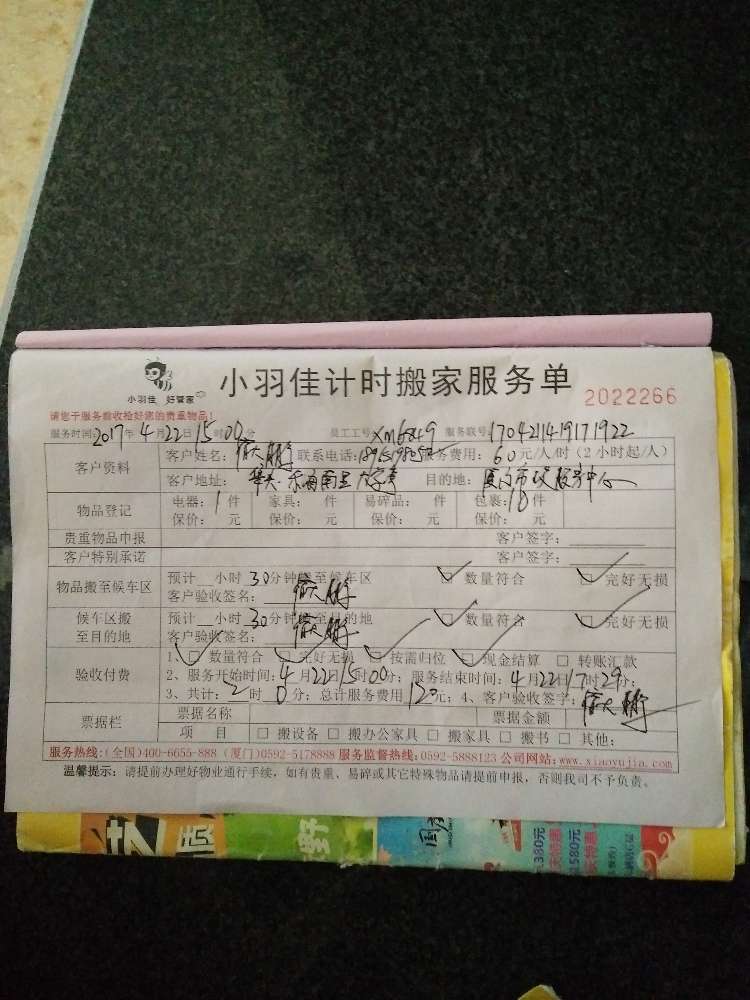 小羽佳 好管家
小羽佳计时搬家服务单
2022266
请您于服务验收检好您的贵重物品!
服务时间: 2017年 4月 22日 15 00分 员工工号: xm6849 服务联号: 1704211419171922
客户资料 客户姓名: 联系电话: 服务费用: 60元/人/时(2小时起/人)
客户地址: 目的地: 厦门市政服务中心
物品登记 电器: 1件 家具: 件 易碎品: 件 包裹: 18件
保价: 元 保价: 元 保价: 元 保价: 元
贵重物品申报 客户签字:
客户特别承诺 客户签字:
物品搬至候车区 预计__小时 30分钟搬至候车区 ☑ 数量符合 ☑ 完好无损
客户验收签名:
候车区搬至目的地 预计__小时 30分钟搬至目的地 ☑ 数量符合 ☑ 完好无损
客户验收签名:
验收付费 1、☑ 数量符合 ☑ 完好无损 ☑ 按需归位 ☑ 现金结算 □ 转账汇款
2、服务开始时间: 4月22日15时00分; 服务结束时间: 4月22日17时29分;
3、共计: 2时 0分; 总计服务费用 120元; 4、客户验收签字:
票据栏 票据名称 票据金额
项 目 □ 搬设备 □ 搬办公家具 □ 搬家具 □ 搬书 □ 其他:
服务热线:(全国)400-6655-888 (厦门)0592-5178888 服务监督热线:0592-5888123 公司网站:www.xiaoyujia.com
温馨提示: 请提前办理好物业通行手续, 如有贵重、易碎或其它特殊物品请提前申报, 否则我司不予负责。
380元
1580元